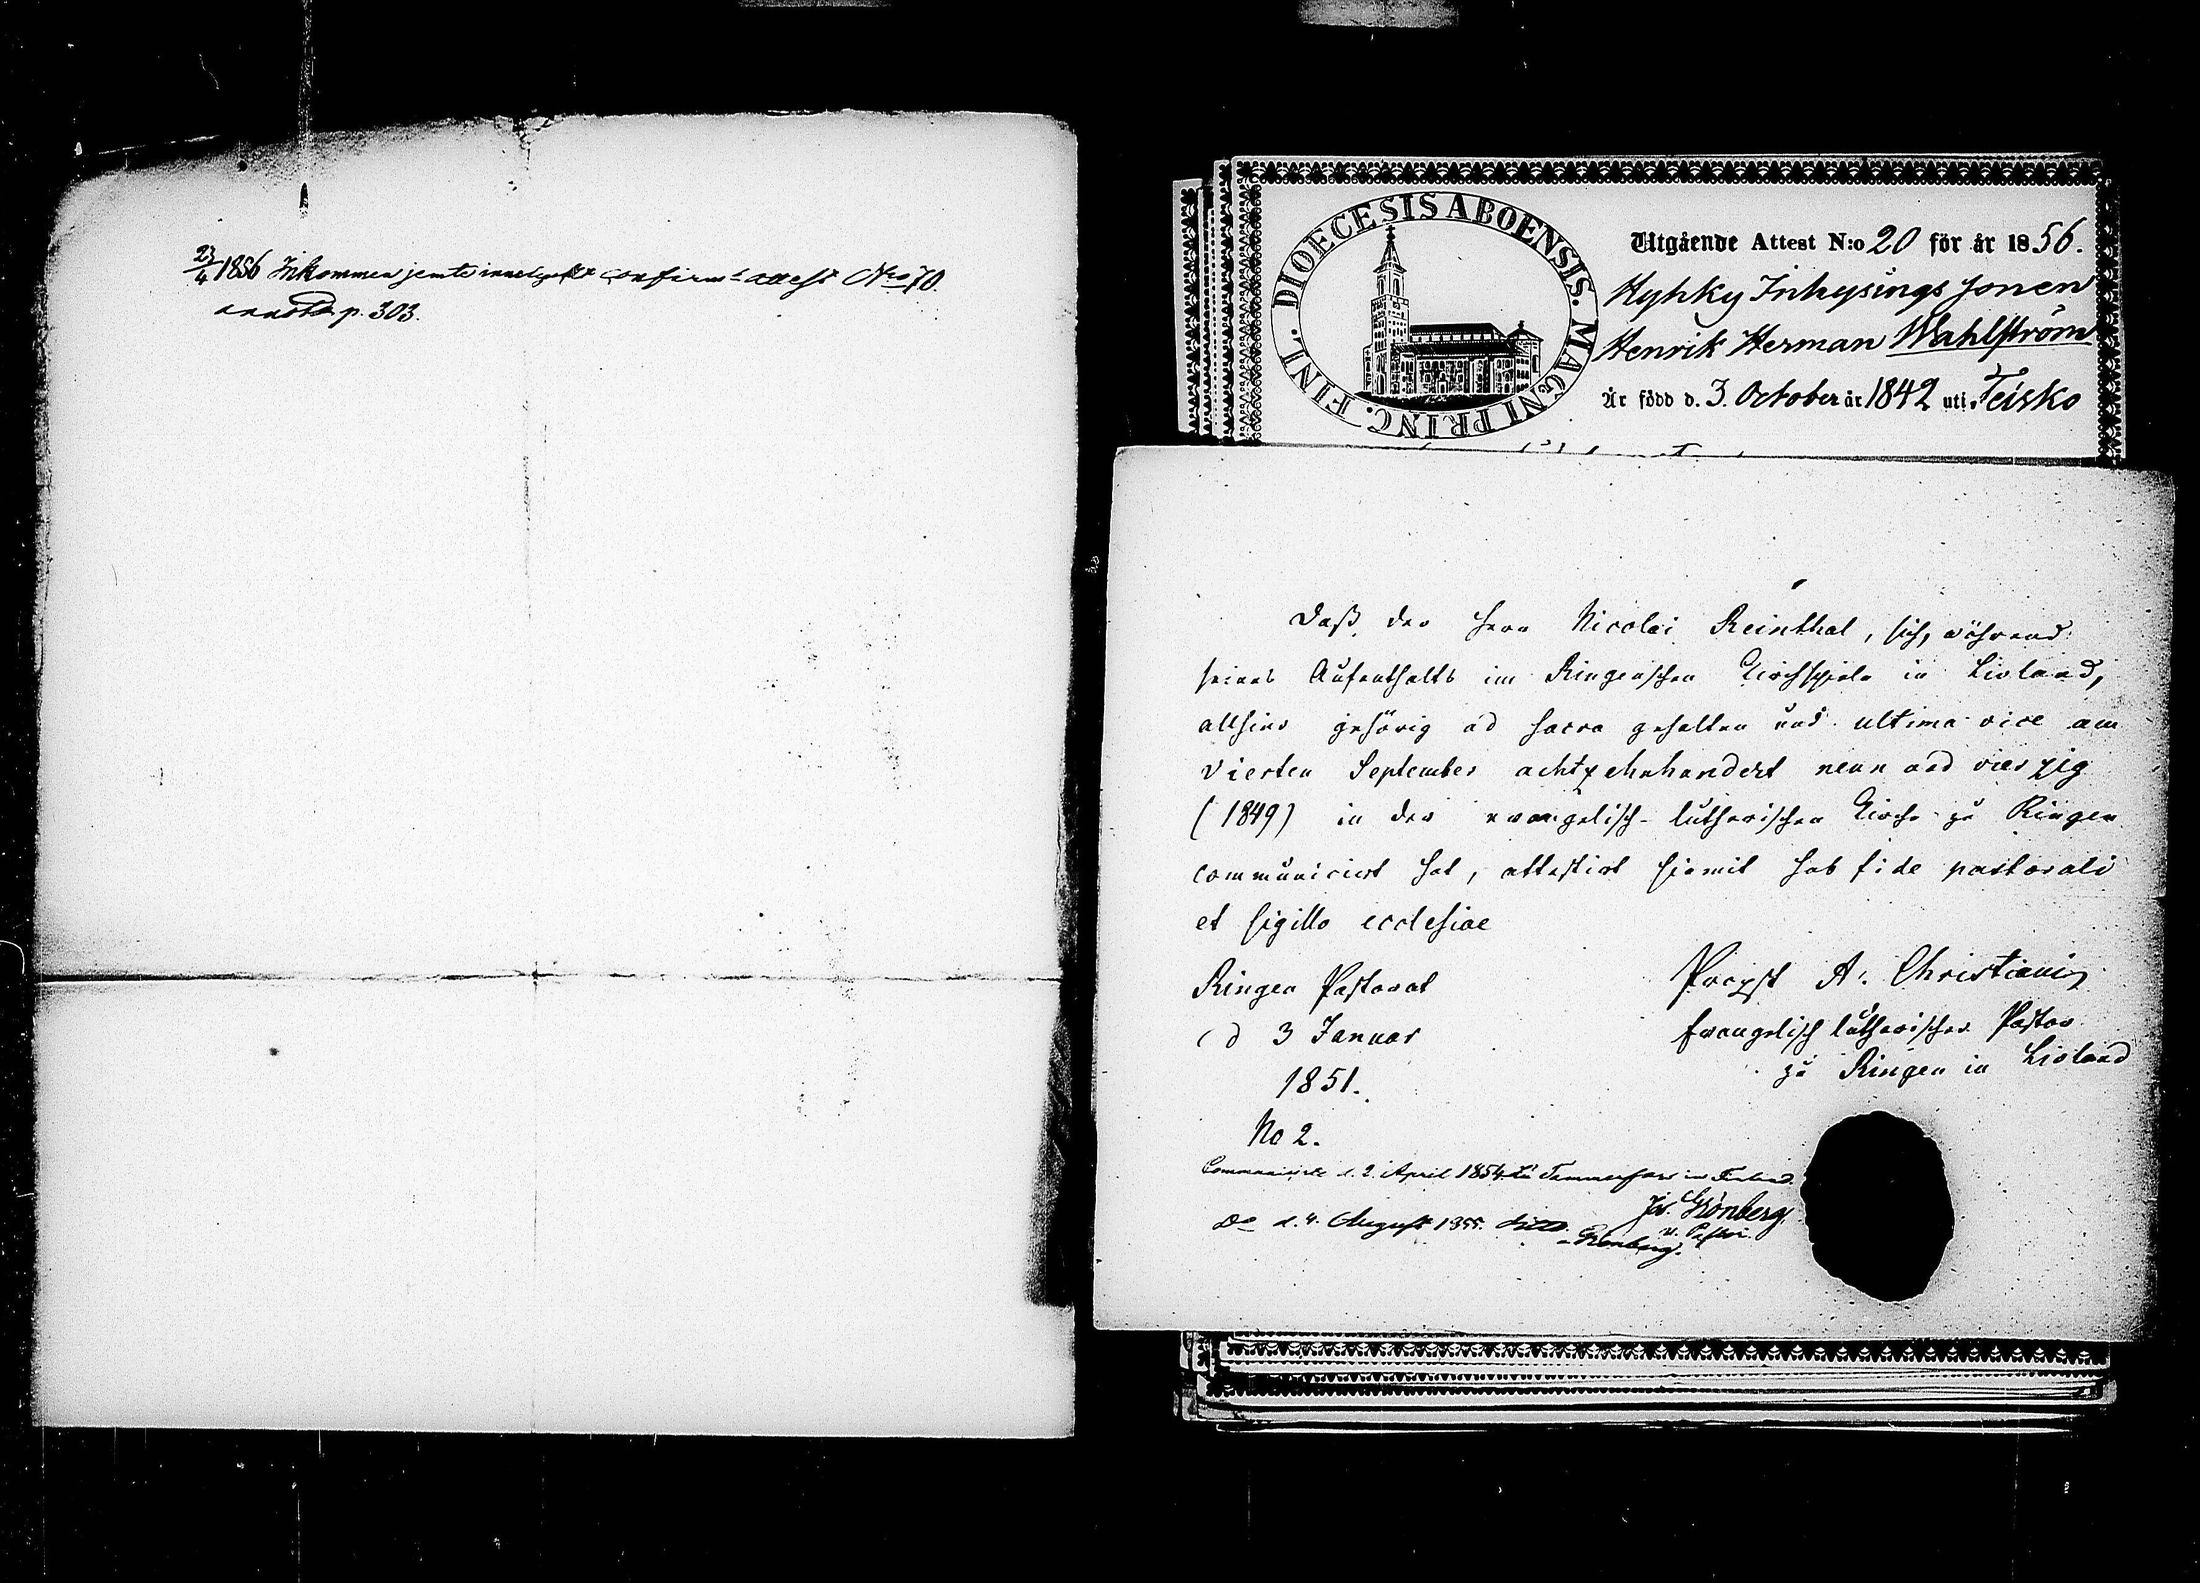 23/4 1856 Inkommen jemte inneliggde confirm:s attest Nro 70.
annotd p. 303.
DIOECESIS ABOENSIS. MAGNI PRINC. FINL.
Utgående Attest N:o 20 för år 1856.
Hyhky Inhysings sonen
Henrik Herman Wahlström
Är född d. 3. October år 1842 uti Teisko
Daß der Herr Nicolai Reinthal, sich, während
seines Aufenthalts im Ringenschen Kirchspiele in Livland,
allhier gehörig ad sacra gehalten und ultima vice am
vierten September achtzehnhundert neun und vierzig
(1849) in der evangelisch-lutherischen Kirche zu Ringen
communicirt hat, attestirt hiemit sub fide pastorali
et sigillo ecclesiae
Ringen Pastorat
d 3 Januar
1851.
No 2.
Propst A. Christiani
Evangelisch lutherischer Pastor
zu Ringen in Livland
Communicirte d. 2. April 1854 zu Tammerfors in Finland.
Js. Grönberg.
v. Pastor.
Do d. 4. August 1855. ditto.
Grönberg.